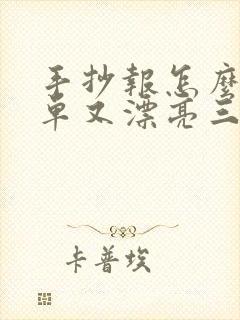 手抄報怎麼
單又漂亮三
卡普埃